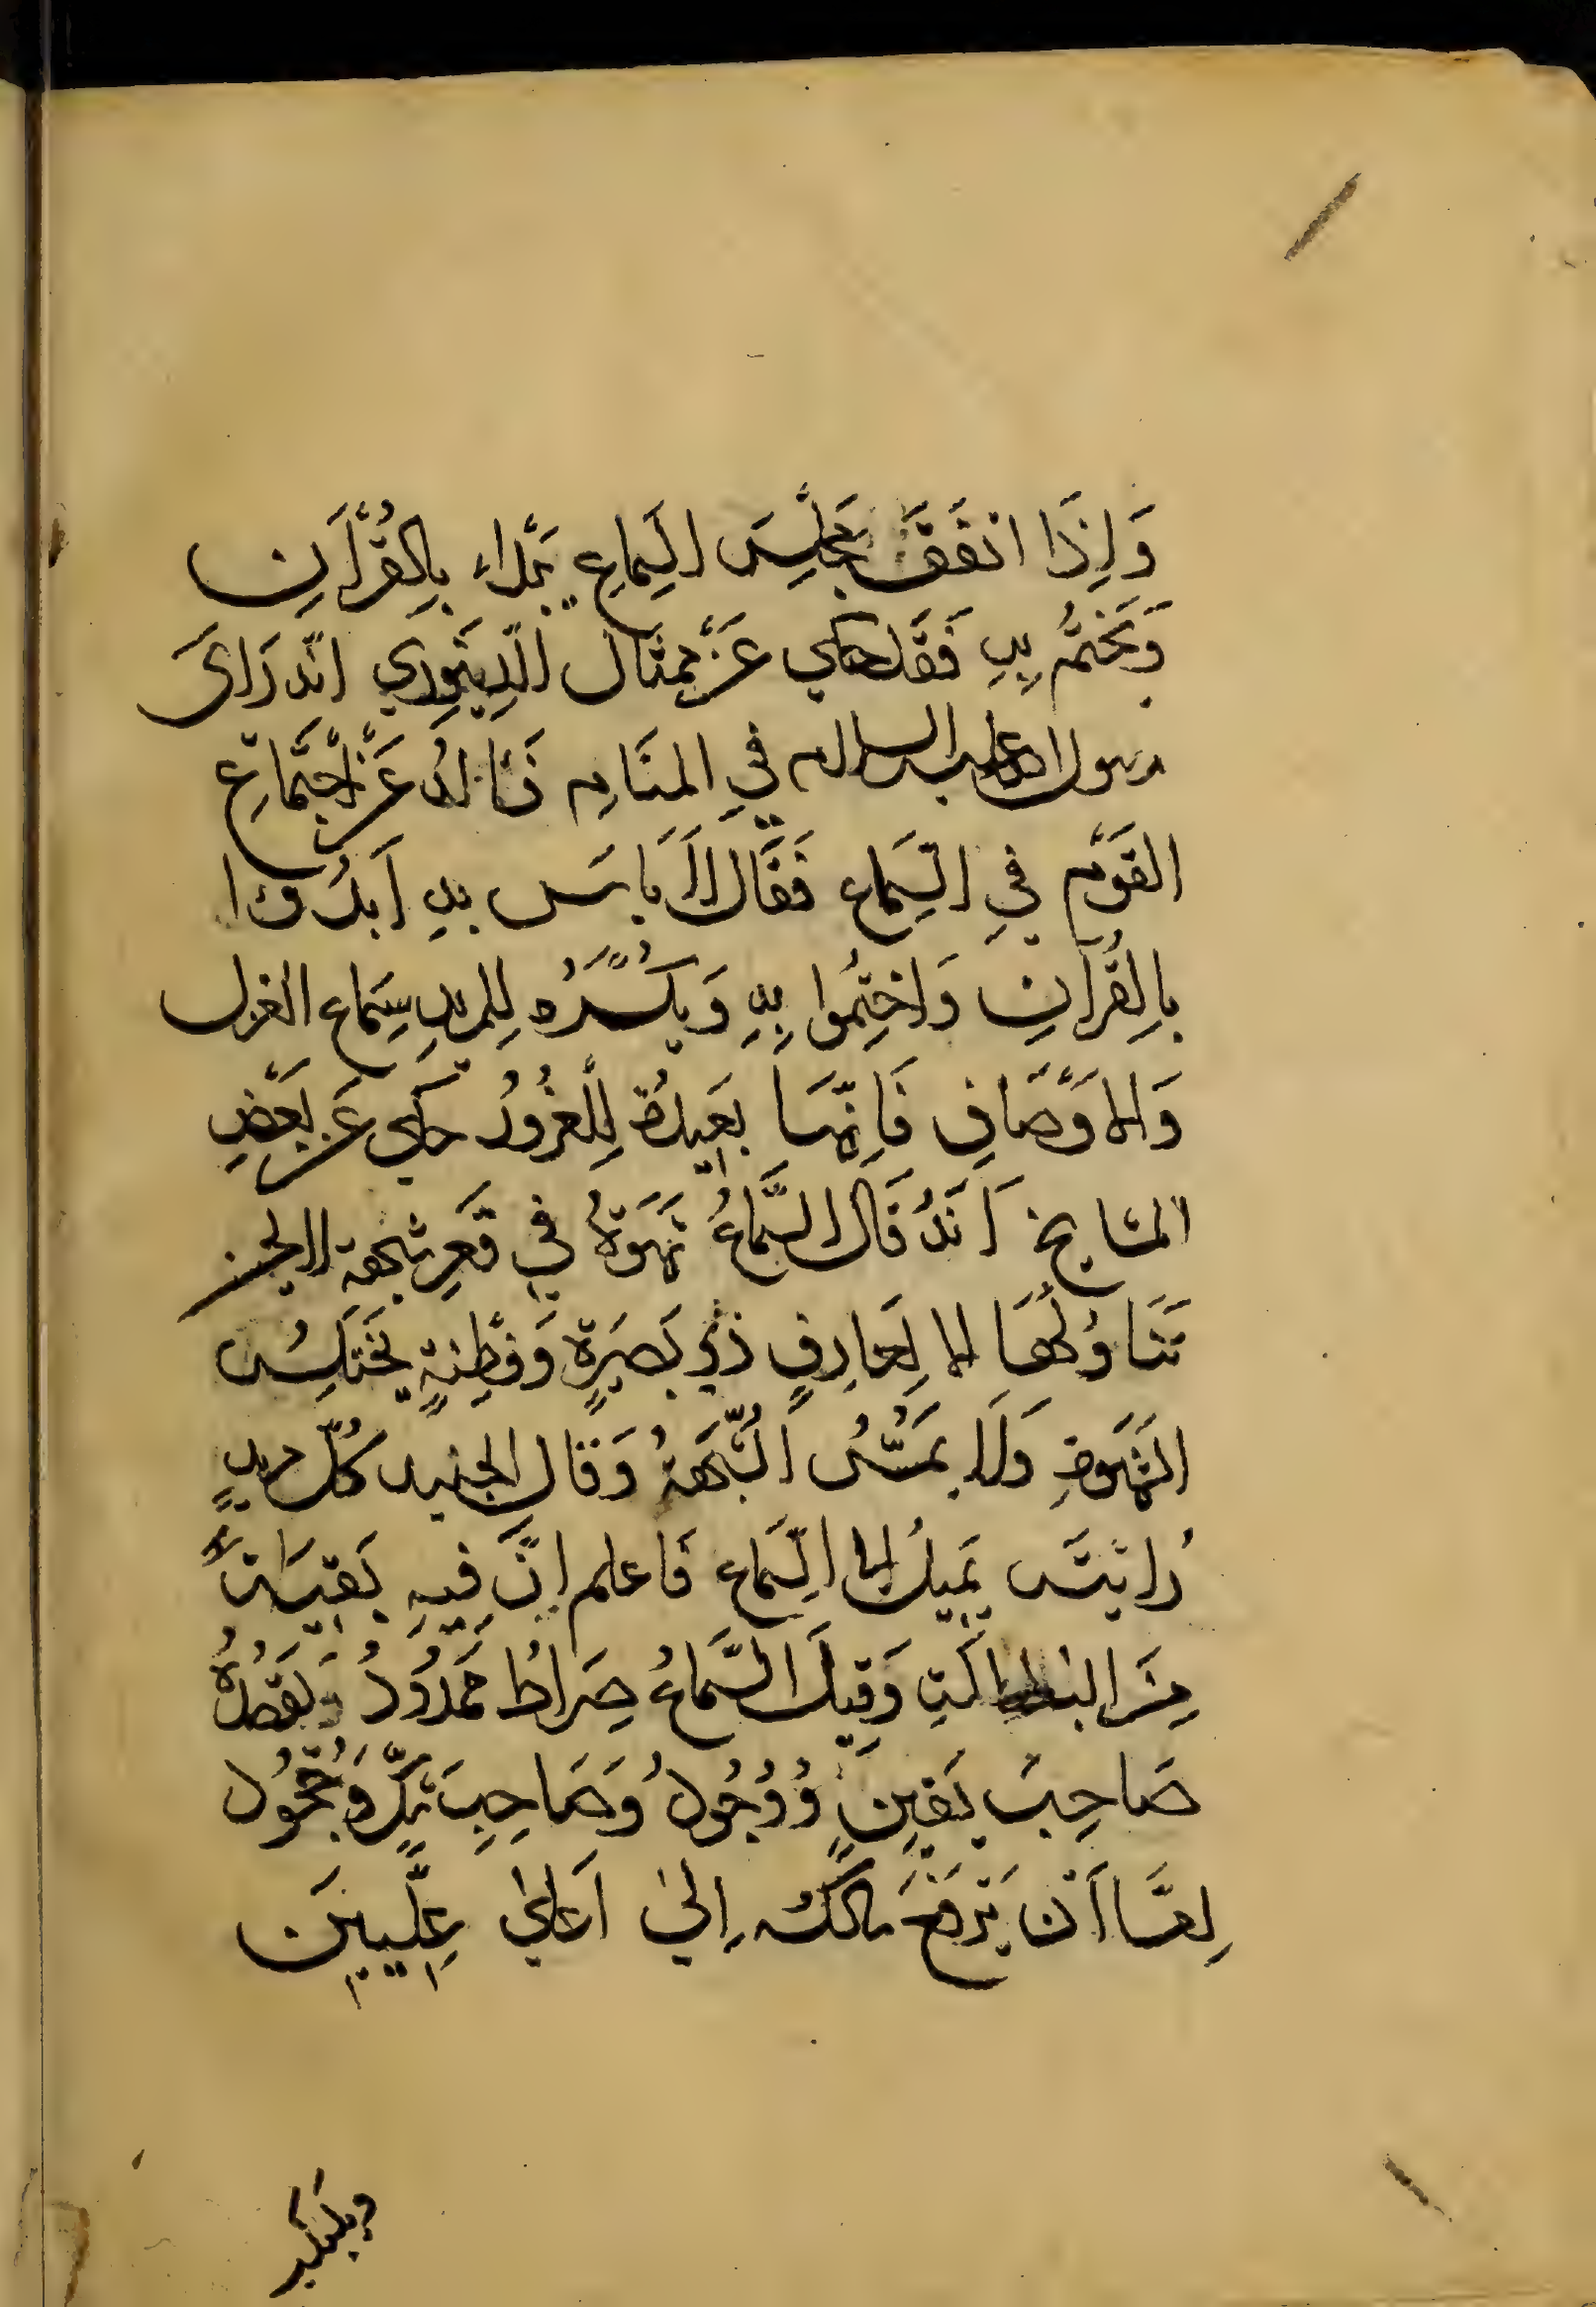 وَإِذَا اتفَقَ مَجْلِسَ السِمَاعِ يَبْدَاء بِالقُرْآنِ
وَيَخْتمُ بِهِ فَقَد حكي عَنْ مِمْشَال الدِينَورِي انّه رَاىَ
رسول الله عليه السلام في المنَامِ فسَالهُ عَنْ اجْتِمَاعِ
القَوْمِ في السِّمَاعِ فَقَال لَا بَاسَ بهِ اَبدُؤا
بِالقُرآنِ وَاخْتِمُوا بِهِ وَيُكْرَهُ لِلمريدِ سِمَاع الغزل
وَالاوْصَافِ فَانّهَا بَعِيدَة لِلغُرُور حكي عَن بَعْضِ
المشايخ اَنّهُ قَال السِّمَاعُ شَهْوَةٌ فِي قَعْرِ شبْهة لا يحسن
تَنَاوُلُهَا الا لِعَارِفٍ ذي بَصِيَرةٍ وَفِطْنةٍ يَخْتَلِسُ
الشَهْوَةِ وَلَا يَمَسُّ الشُّبْهةُ وَقَال الجنيد كُلّ مريدٍ
رُايتَه يَميلُ الى السِّمَاع فَاعلم انَّ فِيهِ بَقِيَةً
مِنَ البَطَالَةِ وَقِيلَ السَّمَاعُ صِراطُ مَمْدُودُ يَقْصدُهُ
صَاحِبَ يَقِينٍ وَوُجُودُ وَصَاحِبَ شكٍّ وَجُحُود
اِمَّا اَنْ يَرْفَعَ سَالكه إِلىٰ اَعْلىٰ عِلِّيينَ